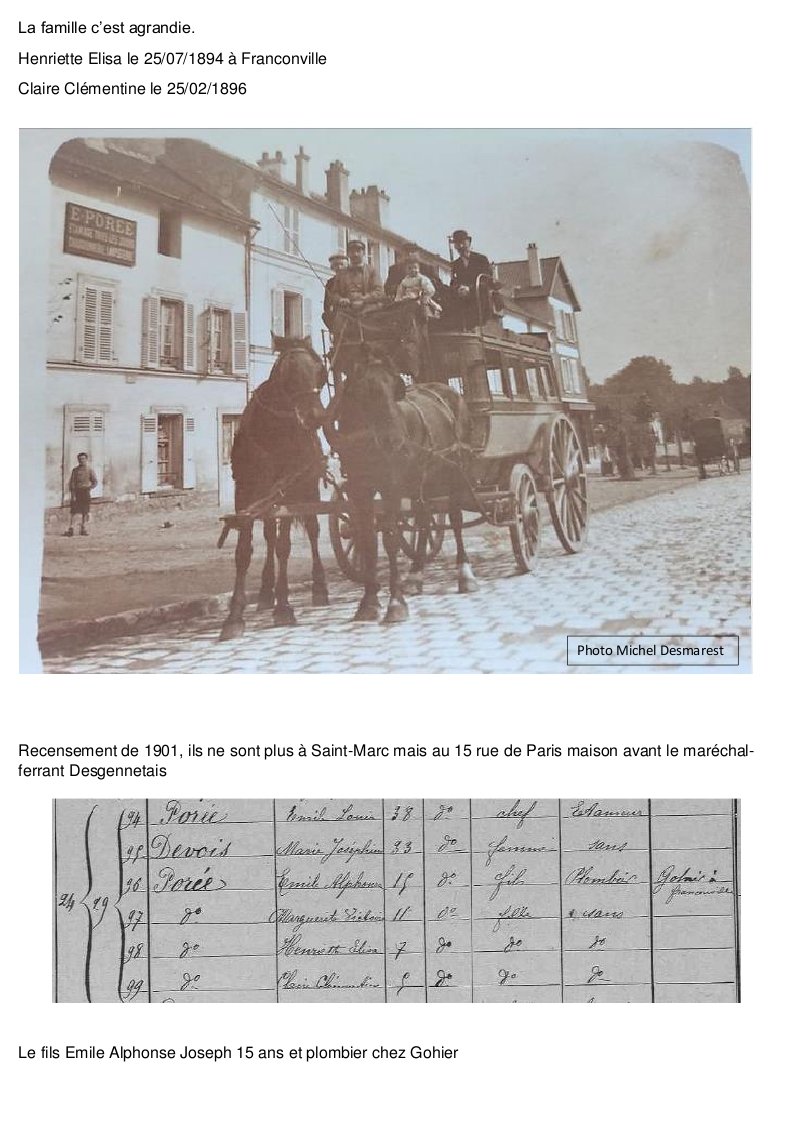 La famille c’est agrandie.
Henriette Elisa le 25/07/1894 à Franconville
Claire Clémentine le 25/02/1896
E. PORÉE
ETAMAGE TOUS LES JOURS
CHAUDRONNERIE LAMPISTERIE
Photo Michel Desmarest
Recensement de 1901, ils ne sont plus à Saint-Marc mais au 15 rue de Paris maison avant le maréchal-
ferrant Desgennetais
24 29
94 Porée Emile Louis 38 do chef Etameur
95 Devois Marie Joséphine 33 do femme sans
96 Porée Emile Alphonse 15 do fils Plombier
franconville
97 do Marguerite 11 do fille sans
98 do Henriette Elisa 7 do do do
99 do Claire Clémentine 5 do do do
Le fils Emile Alphonse Joseph 15 ans et plombier chez Gohier